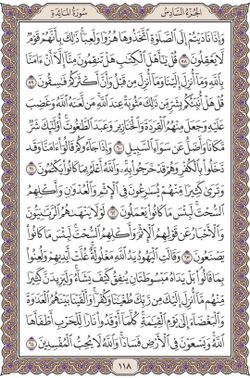 الجزء السادس سورة المائدة
وإذا ناديتم إلى الصلاة اتخذوها هزوا ولعبا ذلك بأنهم قوم
لا يعقلون ٥٨ قل يا أهل الكتاب هل تنقمون منا إلا أن ءامنا
بالله وما أنزل إلينا وما أنزل من قبل وأن أكثركم فاسقون ٥٩
قل هل أنبئكم بشر من ذلك مثوبة عند الله من لعنه الله وغضب
عليه وجعل منهم القردة والخنازير وعبد الطاغوت أولئك شر
مكانا وأضل عن سواء السبيل ٦٠ وإذا جاءوكم قالوا ءامنا وقد
دخلوا بالكفر وهم قد خرجوا به والله أعلم بما كانوا يكتمون ٦١
وترى كثيرا منهم يسارعون في الإثم والعدوان وأكلهم
السحت لبئس ما كانوا يعملون ٦٢ لولا ينهاهم الربانيون
والأحبار عن قولهم الإثم وأكلهم السحت لبئس ما كانوا
يصنعون ٦٣ وقالت اليهود يد الله مغلولة غلت أيديهم ولعنوا
بما قالوا بل يداه مبسوطتان ينفق كيف يشاء وليزيدن كثيرا
منهم ما أنزل إليك من ربك طغيانا وكفرا وألقينا بينهم العداوة
والبغضاء إلى يوم القيامة كلما أوقدوا نارا للحرب أطفأها
الله ويسعون في الأرض فسادا والله لا يحب المفسدين ٦٤
١١٨